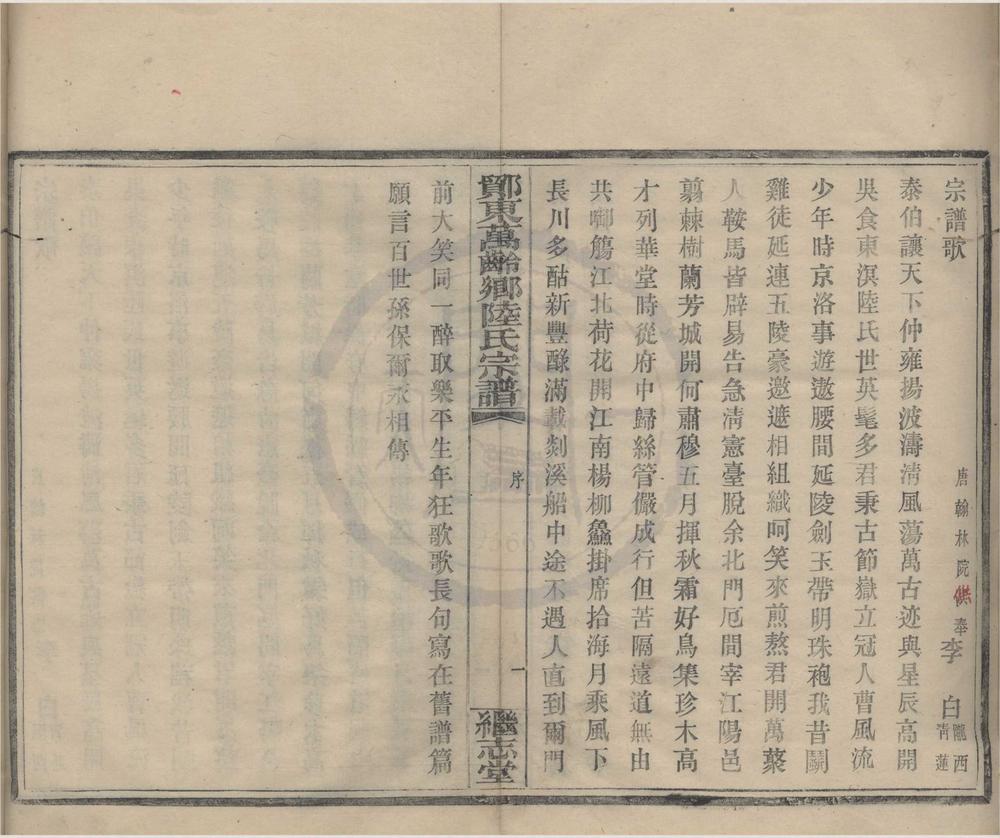 宗譜歌
唐翰林院供奉李 白隴西青蓮
泰伯讓天下仲雍揚波濤清風蕩萬古迹與星辰高開
吳食東溟陸氏世英髦多君秉古節嶽立冠人曹風流
少年時京洛事遊遨腰間延陵劍玉帶明珠袍我昔鬭
雞徒延連五陵豪邀遮相組織呵笑來煎熬君開萬叢
人鞍馬皆辟易告急淸憲臺脫余北門厄間宰江陽邑
翦棘樹蘭芳城開何肅穆五月揮秋霜好鳥集珍木高
才列華堂時從府中歸絲管儼成行但苦隔遠道無由
共啣觴江北荷花開江南楊柳鱻掛席拾海月乘風下
長川多酤新豐醁滿載剡溪船中途不遇人直到爾門
鄞東萬齡鄉陸氏宗譜
序
一
繼志堂
前大笑同一醉取樂平生年狂歌歌長句寫在舊譜篇
願言百世孫保爾永相傳